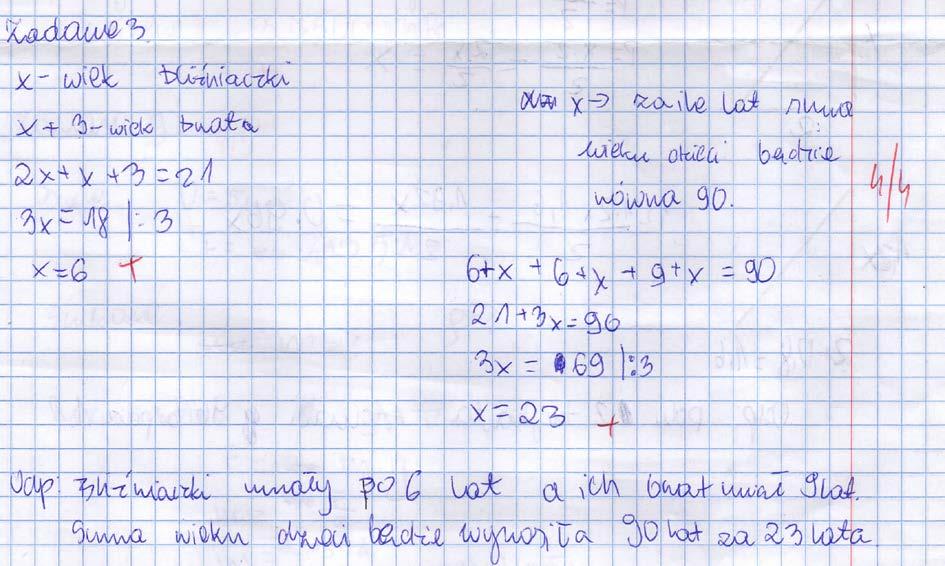 Zadanie 3.
x - wiek bliźniaczki
x + 3 - wiek brata
2x + x + 3 = 21
3x = 18 |: 3
x = 6 +
x → za ile lat suma
wieku dzieci będzie
równa 90.
4/4
6+x + 6+x + 9+x = 90
21+3x = 90
3x = 69 |:3
x = 23 +
Odp: Bliźniaczki miały po 6 lat a ich brat miał 9 lat.
Suma wieku dzieci będzie wynosiła 90 lat za 23 lata.